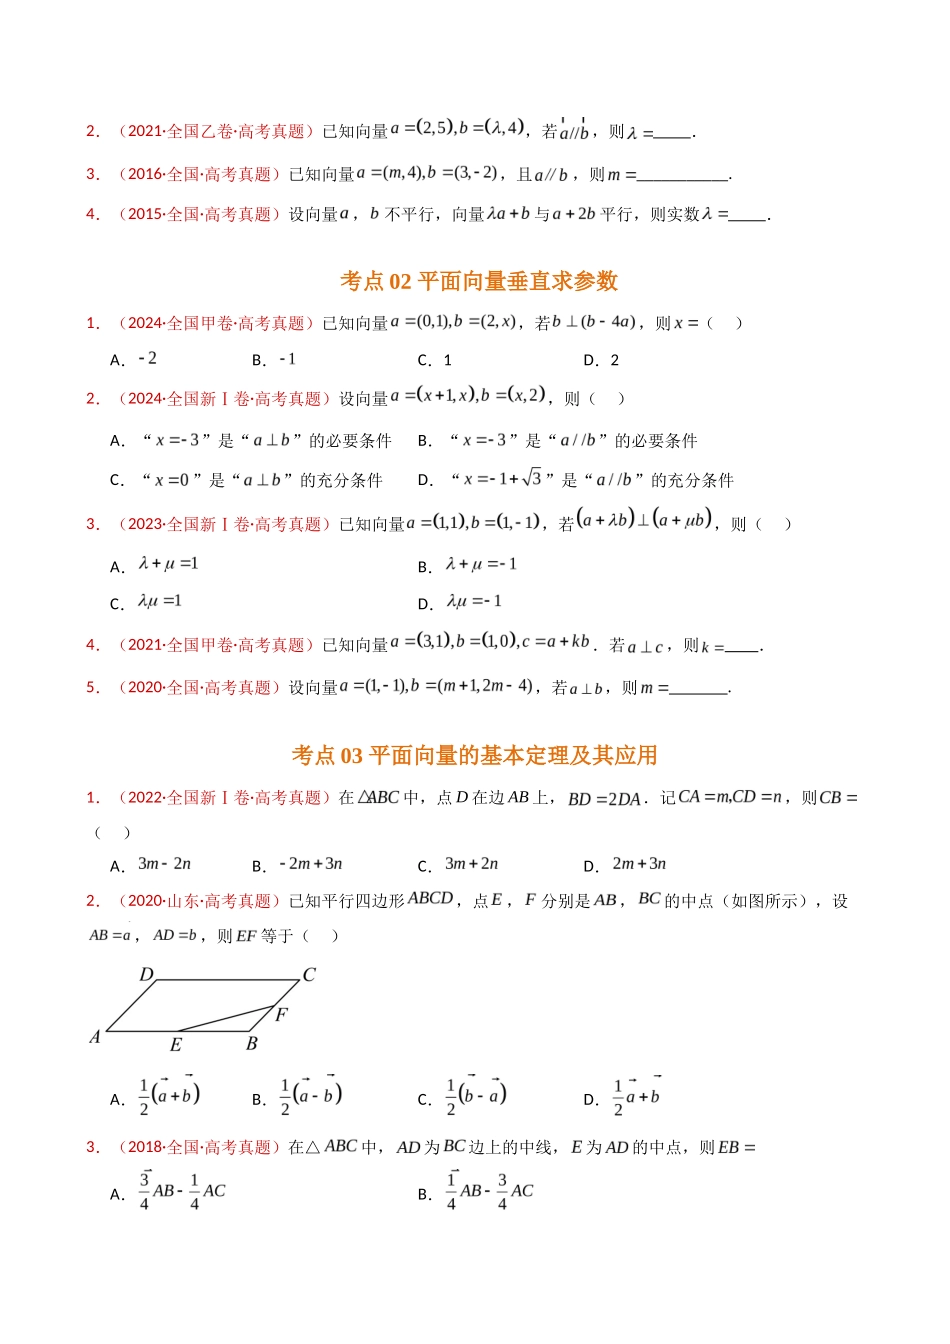 2．（2021·全国乙卷·高考真题）已知向量 a =(2,5),b =(λ,4)，若a//b，则λ =____．
3．（2016·全国·高考真题）已知向量 a =(m,4),b =(3,-2)，且a∥b，则 m =___________．
4．（2015·全国·高考真题）设向量a，b 不平行，向量λa + b 与a + 2b 平行，则实数λ =____．
考点 02 平面向量垂直求参数
1．（2024·全国甲卷·高考真题）已知向量a =(0,1),b =(2,x)，若b ⊥(b - 4a)，则 x =（ ）
A．- 2 B．- 1 C．1 D．2
2．（2024·全国新Ⅰ卷·高考真题）设向量a =(x +1,x),b =(x,2)，则（ ）
A．“x =- 3”是“a ⊥ b”的必要条件 B．“x =- 3”是“a / / b”的必要条件
C．“x =0”是“a ⊥ b”的充分条件 D．“x =- 1+ √3”是“a / / b”的充分条件
3．（2023·全国新Ⅰ卷·高考真题）已知向量a =(1,1),b =(1,- 1)，若(a + λb)⊥(a + μb)，则（ ）
A．λ + μ =1 B．λ + μ =- 1
C．λμ =1 D．λμ =- 1
4．（2021·全国甲卷·高考真题）已知向量a =(3,1),b =(1,0),c =a + kb．若a ⊥ c，则k =____．
5．（2020·全国·高考真题）设向量a =(1,- 1),b =(m +1,2m - 4)，若a ⊥ b，则m =_______．
考点 03 平面向量的基本定理及其应用
1．（2022·全国新Ⅰ卷·高考真题）在△ABC 中，点 D 在边 AB 上，BD =2DA．记CA =m,CD =n，则CB =
（ ）
A．3m - 2n B．- 2m + 3n C．3m + 2n D．2m + 3n
2．（2020·山东·高考真题）已知平行四边形ABCD，点E，F 分别是 AB，BC 的中点（如图所示），设
AB =a，AD =b，则EF 等于（ ）
D C
F
A E B
A．1/2(a + b) B．1/2(a - b) C．1/2(b - a) D．1/2 a + b
3．（2018·全国·高考真题）在△ ABC 中，AD 为BC 边上的中线，E 为 AD 的中点，则EB =
A．3/4 AB - 1/4 AC B．1/4 AB - 3/4 AC